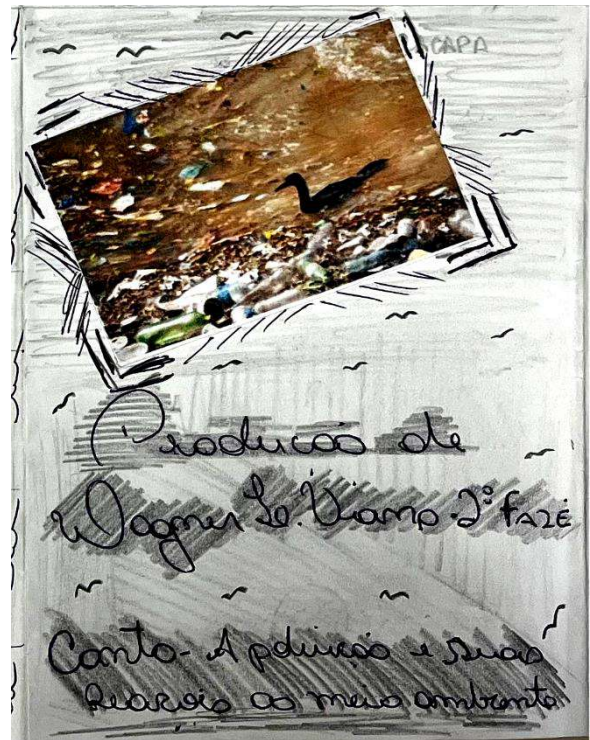 CAPA
Producão de
Wagner Le. Viana - 2º FAZE
Conto - A poluição e suas
ao meio ambiente